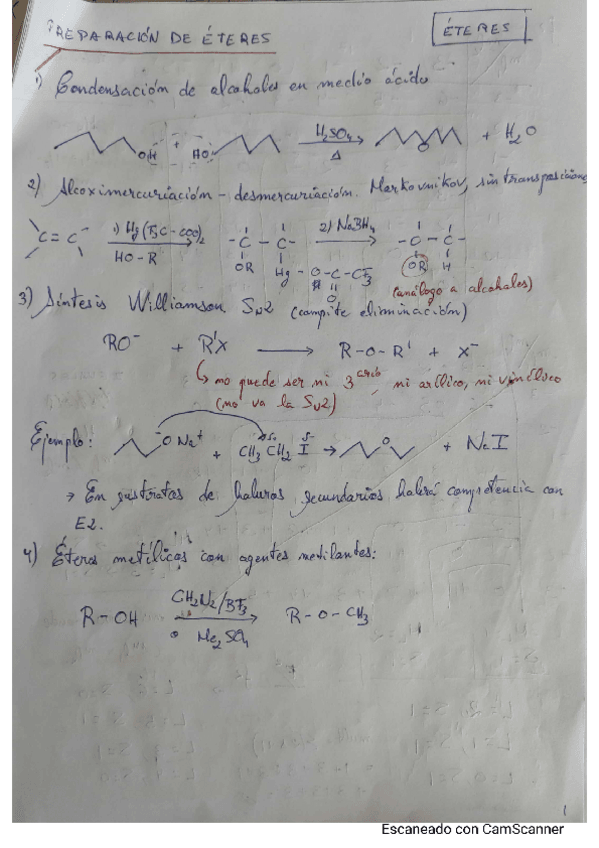 PREPARACIÓN DE ÉTERES
ÉTERES
1) Condensación de alcoholes en medio ácido
OH + HO H₂SO₄ Δ O + H₂O
2) Alcoximercuriación - desmercuriación. Markovnikov, sin transposiciones
C=C 1) Hg(F₃C-COO)₂ HO-R -C-C- OR Hg-O-C-CF₃ O 2) NaBH₄ -C-C- OR H
(análogo a alcoholes)
3) Síntesis Williamson SN2 (compite eliminación)
RO⁻ + R'X → R-O-R' + X⁻
↳ no puede ser ni 3ario, ni arílico, ni vinílico
(no va la SN2)
Ejemplo: ⁻O Na⁺ + CH₃ CH₂ I δ⁺ δ⁻ → O + NaI
→ En sustratos de haluros secundarios habrá competencia con
E2.
4) Éteres metílicos con agentes metilantes:
R-OH CH₂N₂/BF₃ o Me₂SO₄ R-O-CH₃
1
Escaneado con CamScanner